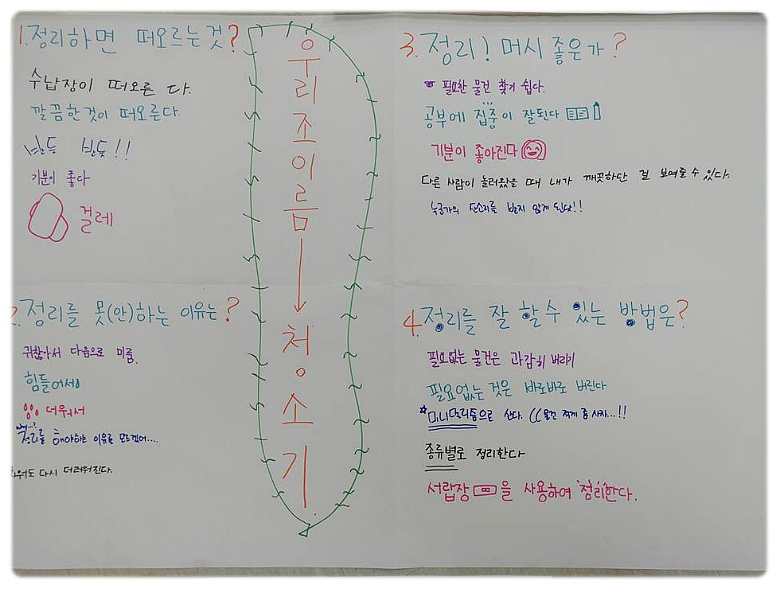 1.정리하면 떠오르는것?
수납장이 떠오른다.
깔끔한것이 떠오른다.
반듯 반듯!!
기분이 좋다
걸레
우리조이름→청소기
2.정리를 못(안)하는 이유는?
귀찮아서 다음으로 미룸.
힘들어서
더워서
정리를 해야하는 이유를 모르겠어....
다시 더러워진다.
3.정리! 머시 좋은가?
필요한 물건 찾기 쉽다.
공부에 집중이 잘된다
기분이 좋아진다
다른 사람이 놀러왔을 때 내가 깨끗하단 걸 보여줄 수 있다.
누군가의 잔소리를 받지 않게 된다!!
4.정리를 잘 할 수 있는 방법은?
필요없는 물건은 과감히 버리기
필요없는 것은 바로바로 버린다
미니멀리즘으로 산다. ((물건 적게 좀 사자...!!
종류별로 정리한다
서랍장을 사용하여 정리한다.